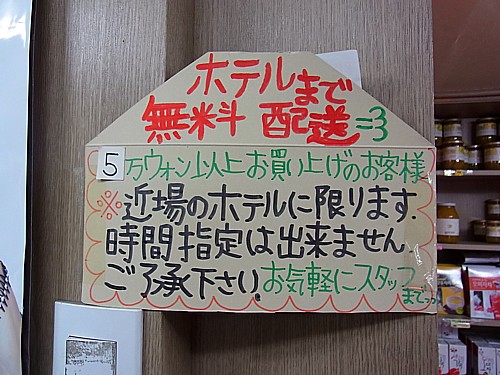 ホテルまで
無料 配送
5万ウォン以上お買い上げのお客様
※近場のホテルに限ります.
時間指定は出来ません、
ご了承下さい。お気軽にスタッフ
までっっ